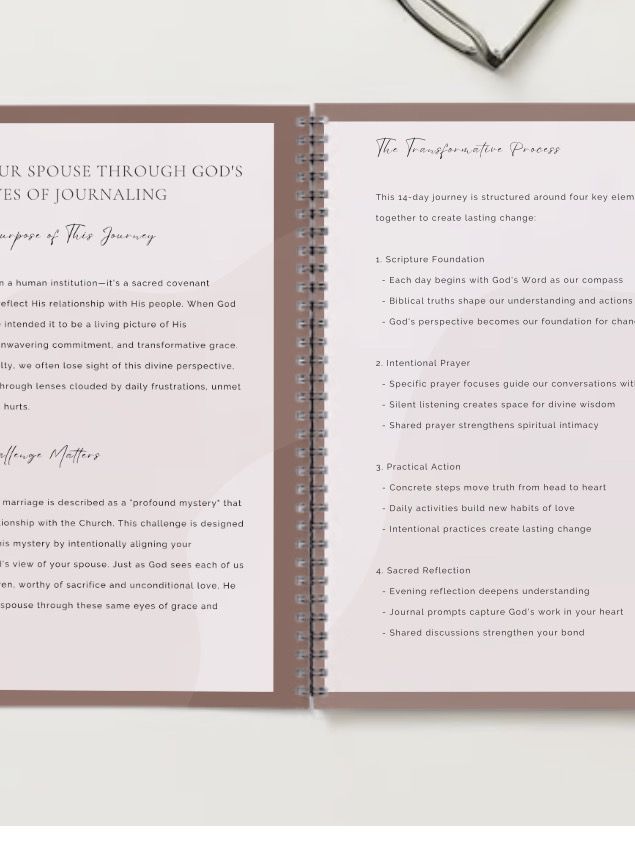 UR SPOUSE THROUGH GOD'S
ES OF JOURNALING
urpose of This Journey
n a human institution—it's a sacred covenant
reflect His relationship with His people. When God
intended it to be a living picture of His
nwavering commitment, and transformative grace.
lty, we often lose sight of this divine perspective,
hrough lenses clouded by daily frustrations, unmet
hurts.
allenge Matters
marriage is described as a "profound mystery" that
tionship with the Church. This challenge is designed
his mystery by intentionally aligning your
d's view of your spouse. Just as God sees each of us
ren, worthy of sacrifice and unconditional love, He
spouse through these same eyes of grace and
The Transformative Process
This 14-day journey is structured around four key elem
together to create lasting change:
1. Scripture Foundation
- Each day begins with God's Word as our compass
- Biblical truths shape our understanding and actions
- God's perspective becomes our foundation for chan
2. Intentional Prayer
- Specific prayer focuses guide our conversations wit
- Silent listening creates space for divine wisdom
- Shared prayer strengthens spiritual intimacy
3. Practical Action
- Concrete steps move truth from head to heart
- Daily activities build new habits of love
- Intentional practices create lasting change
4. Sacred Reflection
- Evening reflection deepens understanding
- Journal prompts capture God's work in your heart
- Shared discussions strengthen your bond